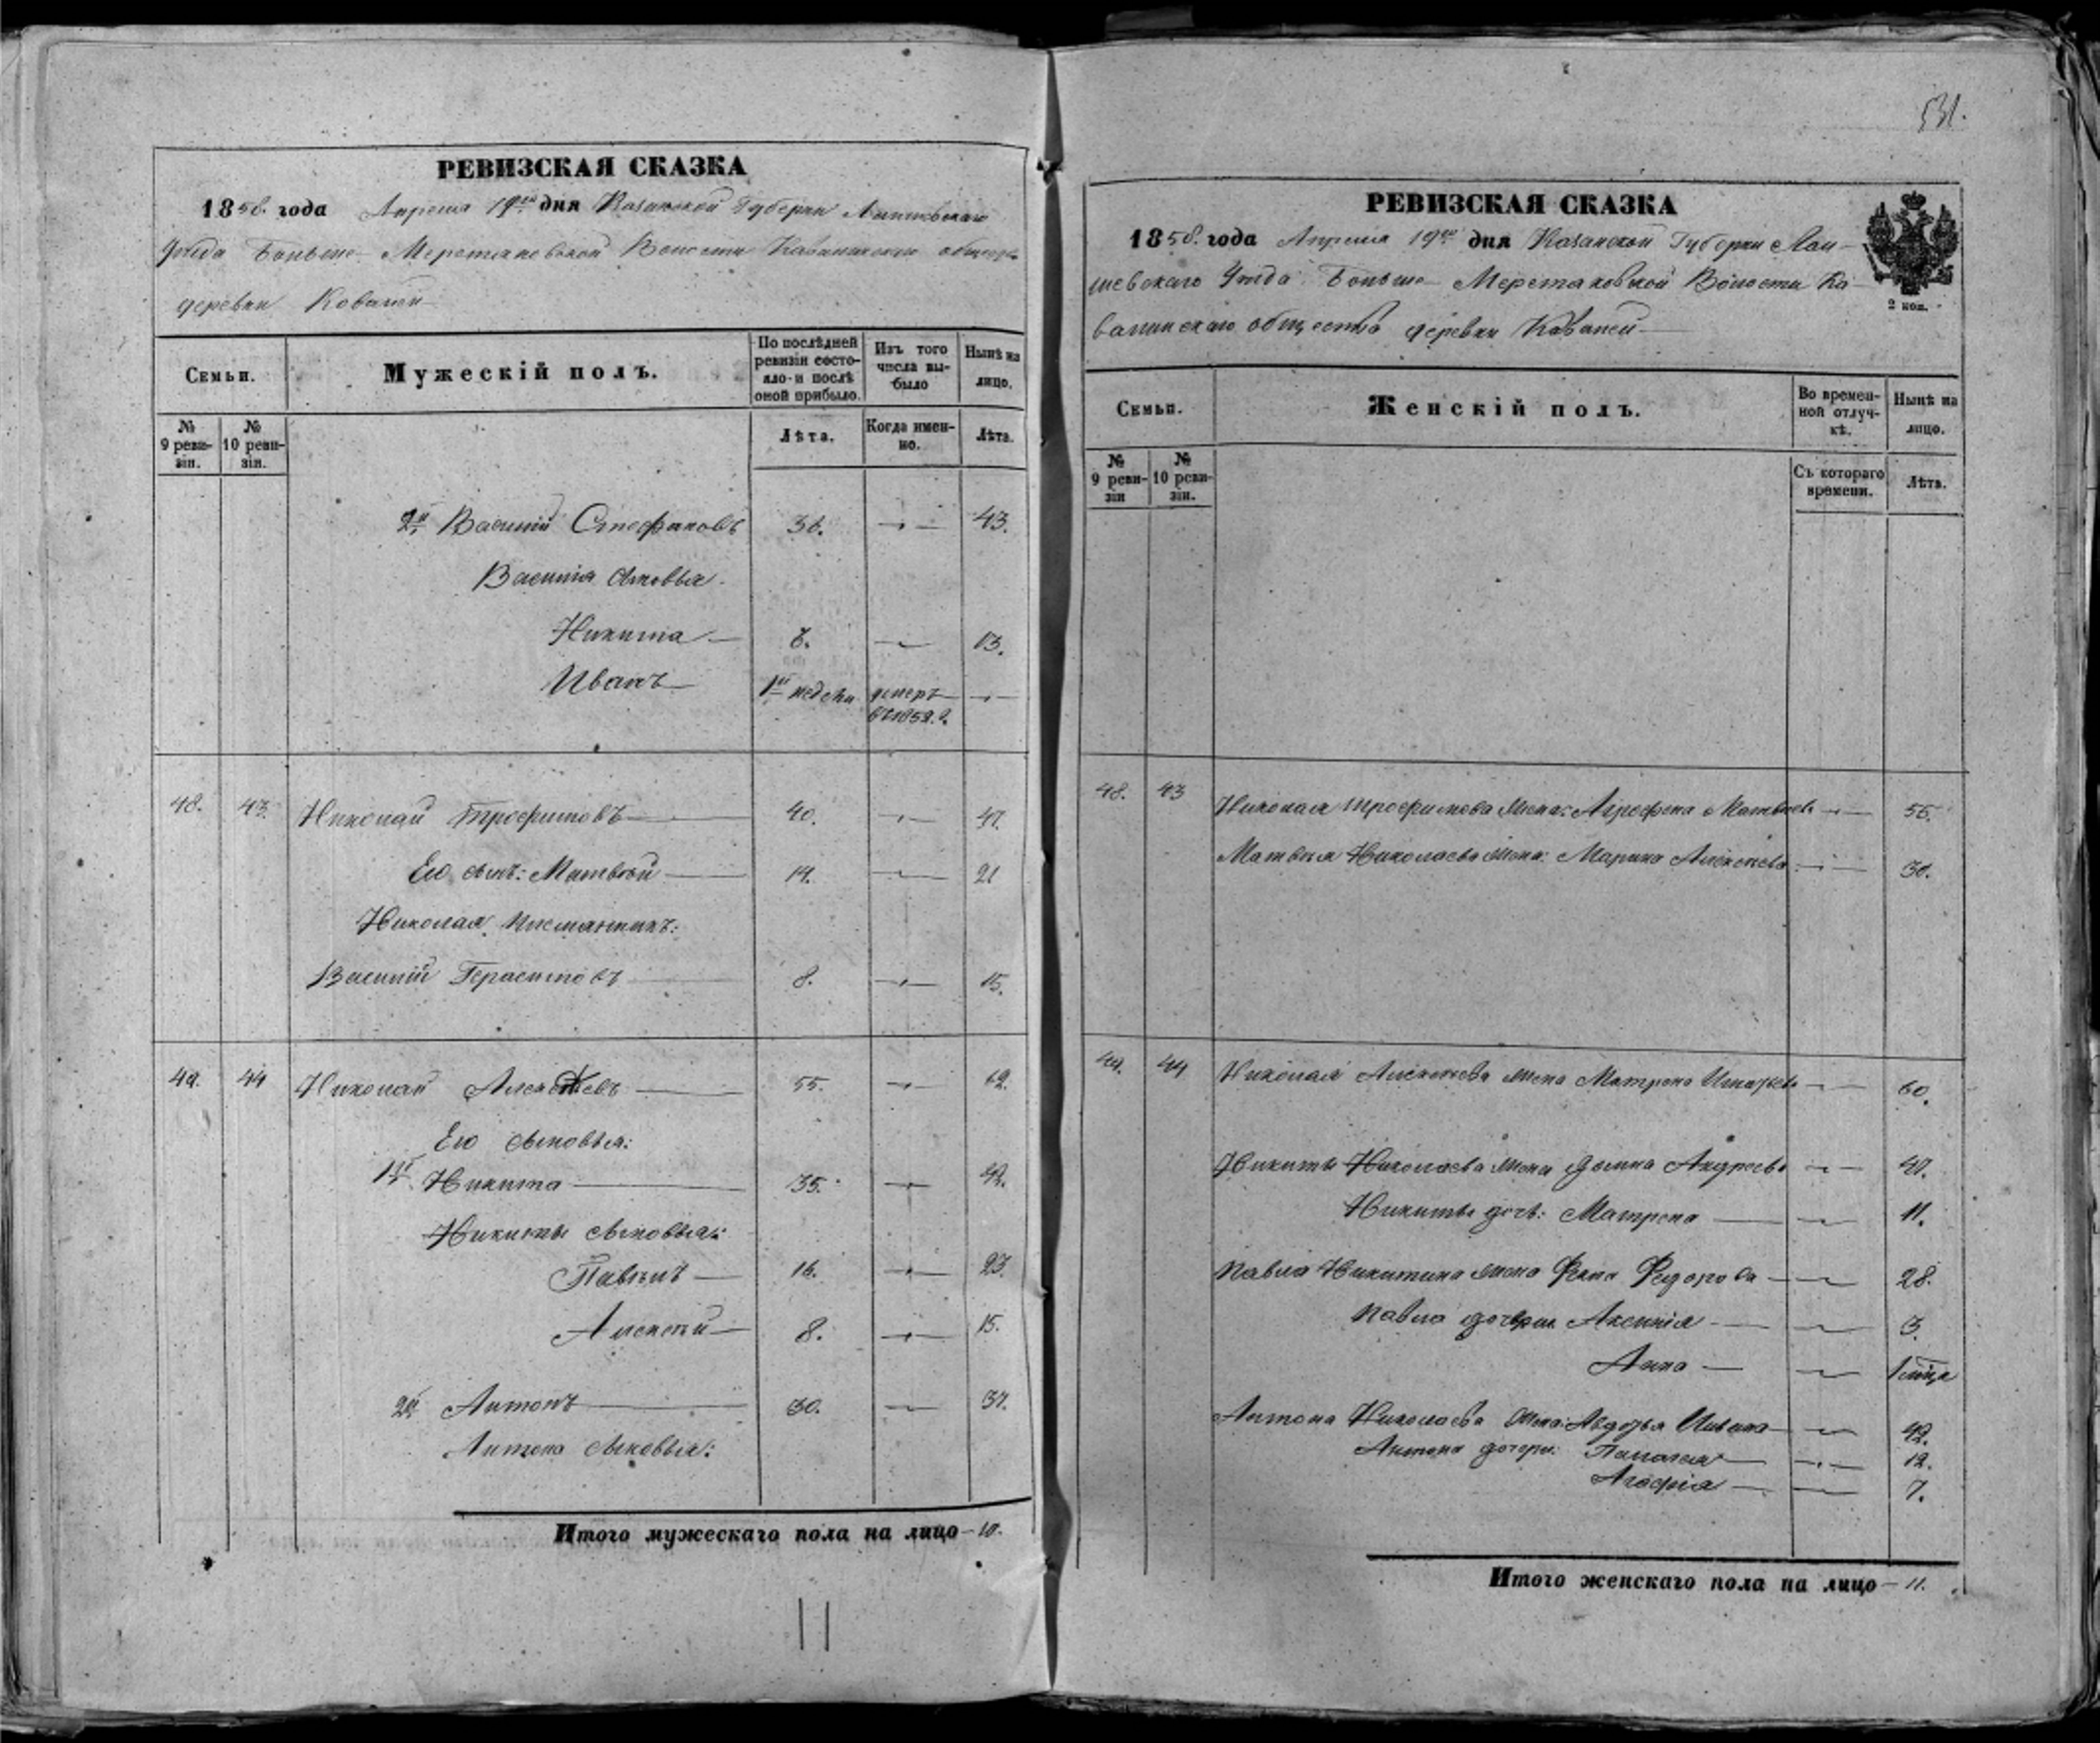 РЕВИЗСКАЯ СКАЗКА
1858. года Апреля 19го дня Казанской Губерніи Лаишевскаго
Уѣзда Больше- Меретяковской Волости
деревни Ковалей
Семьи.
Мужескій полъ.
По послѣдней ревизіи состояло и послѣ оной прибыло.
Изъ того числа выбыло
Нынѣ на лицо.
№ 9 ревизіи.
№ 10 ревизіи.
Лѣта.
Когда именно.
Лѣта.
2й Василій Стефановъ 36. 43.
Василія сыновья.
Никита 13.
Иванъ 1й недѣли умеръ въ 1852.г.
48. 43. Николай Трофимовъ 40. 47.
Его сынъ: Матвѣй 14. 21
Николая племянникъ:
Василій Герасимовъ 8. 15.
49. 44 Николай Алексѣевъ 55. 62.
Его сыновья:
1й Никита 35. 42.
Никиты сыновья:
Павелъ 16. 23.
Алексѣй 8. 15.
2й Антонъ 30. 37.
Антона сыновья:
Итого мужескаго пола на лицо – 10.
11
531.
РЕВИЗСКАЯ СКАЗКА
1858. года Апреля 19го дня Казанской Губерніи Лаи-
шевскаго Уѣзда Больше- Меретяковской Волости Ко-
валинскаго общества деревни Ковалей
2 коп.
Семьи.
Женскій полъ.
Во временной отлучкѣ.
Нынѣ на лицо.
№ 9 ревизіи
№ 10 ревизіи.
Съ котораго времени.
Лѣта.
48. 43 Николая Трофимова жена: Агрофена Матвѣева
Матвѣя Николаева жена: Марина Алексѣева 30.
49. 44 Николая Алексѣева жена Матрена 60.
Никиты Николаева жена Домна Андреева
Никиты дочь: Матрена 11.
Павла Никитина жена Фекла Федорова 28.
Павла дочери Аксинія 3.
Анна 1 мѣца
Антона Николаева жена: Авдотья 42.
Антона дочери: Палагея 12.
Агафія 7.
Итого женскаго пола на лицо – 11.